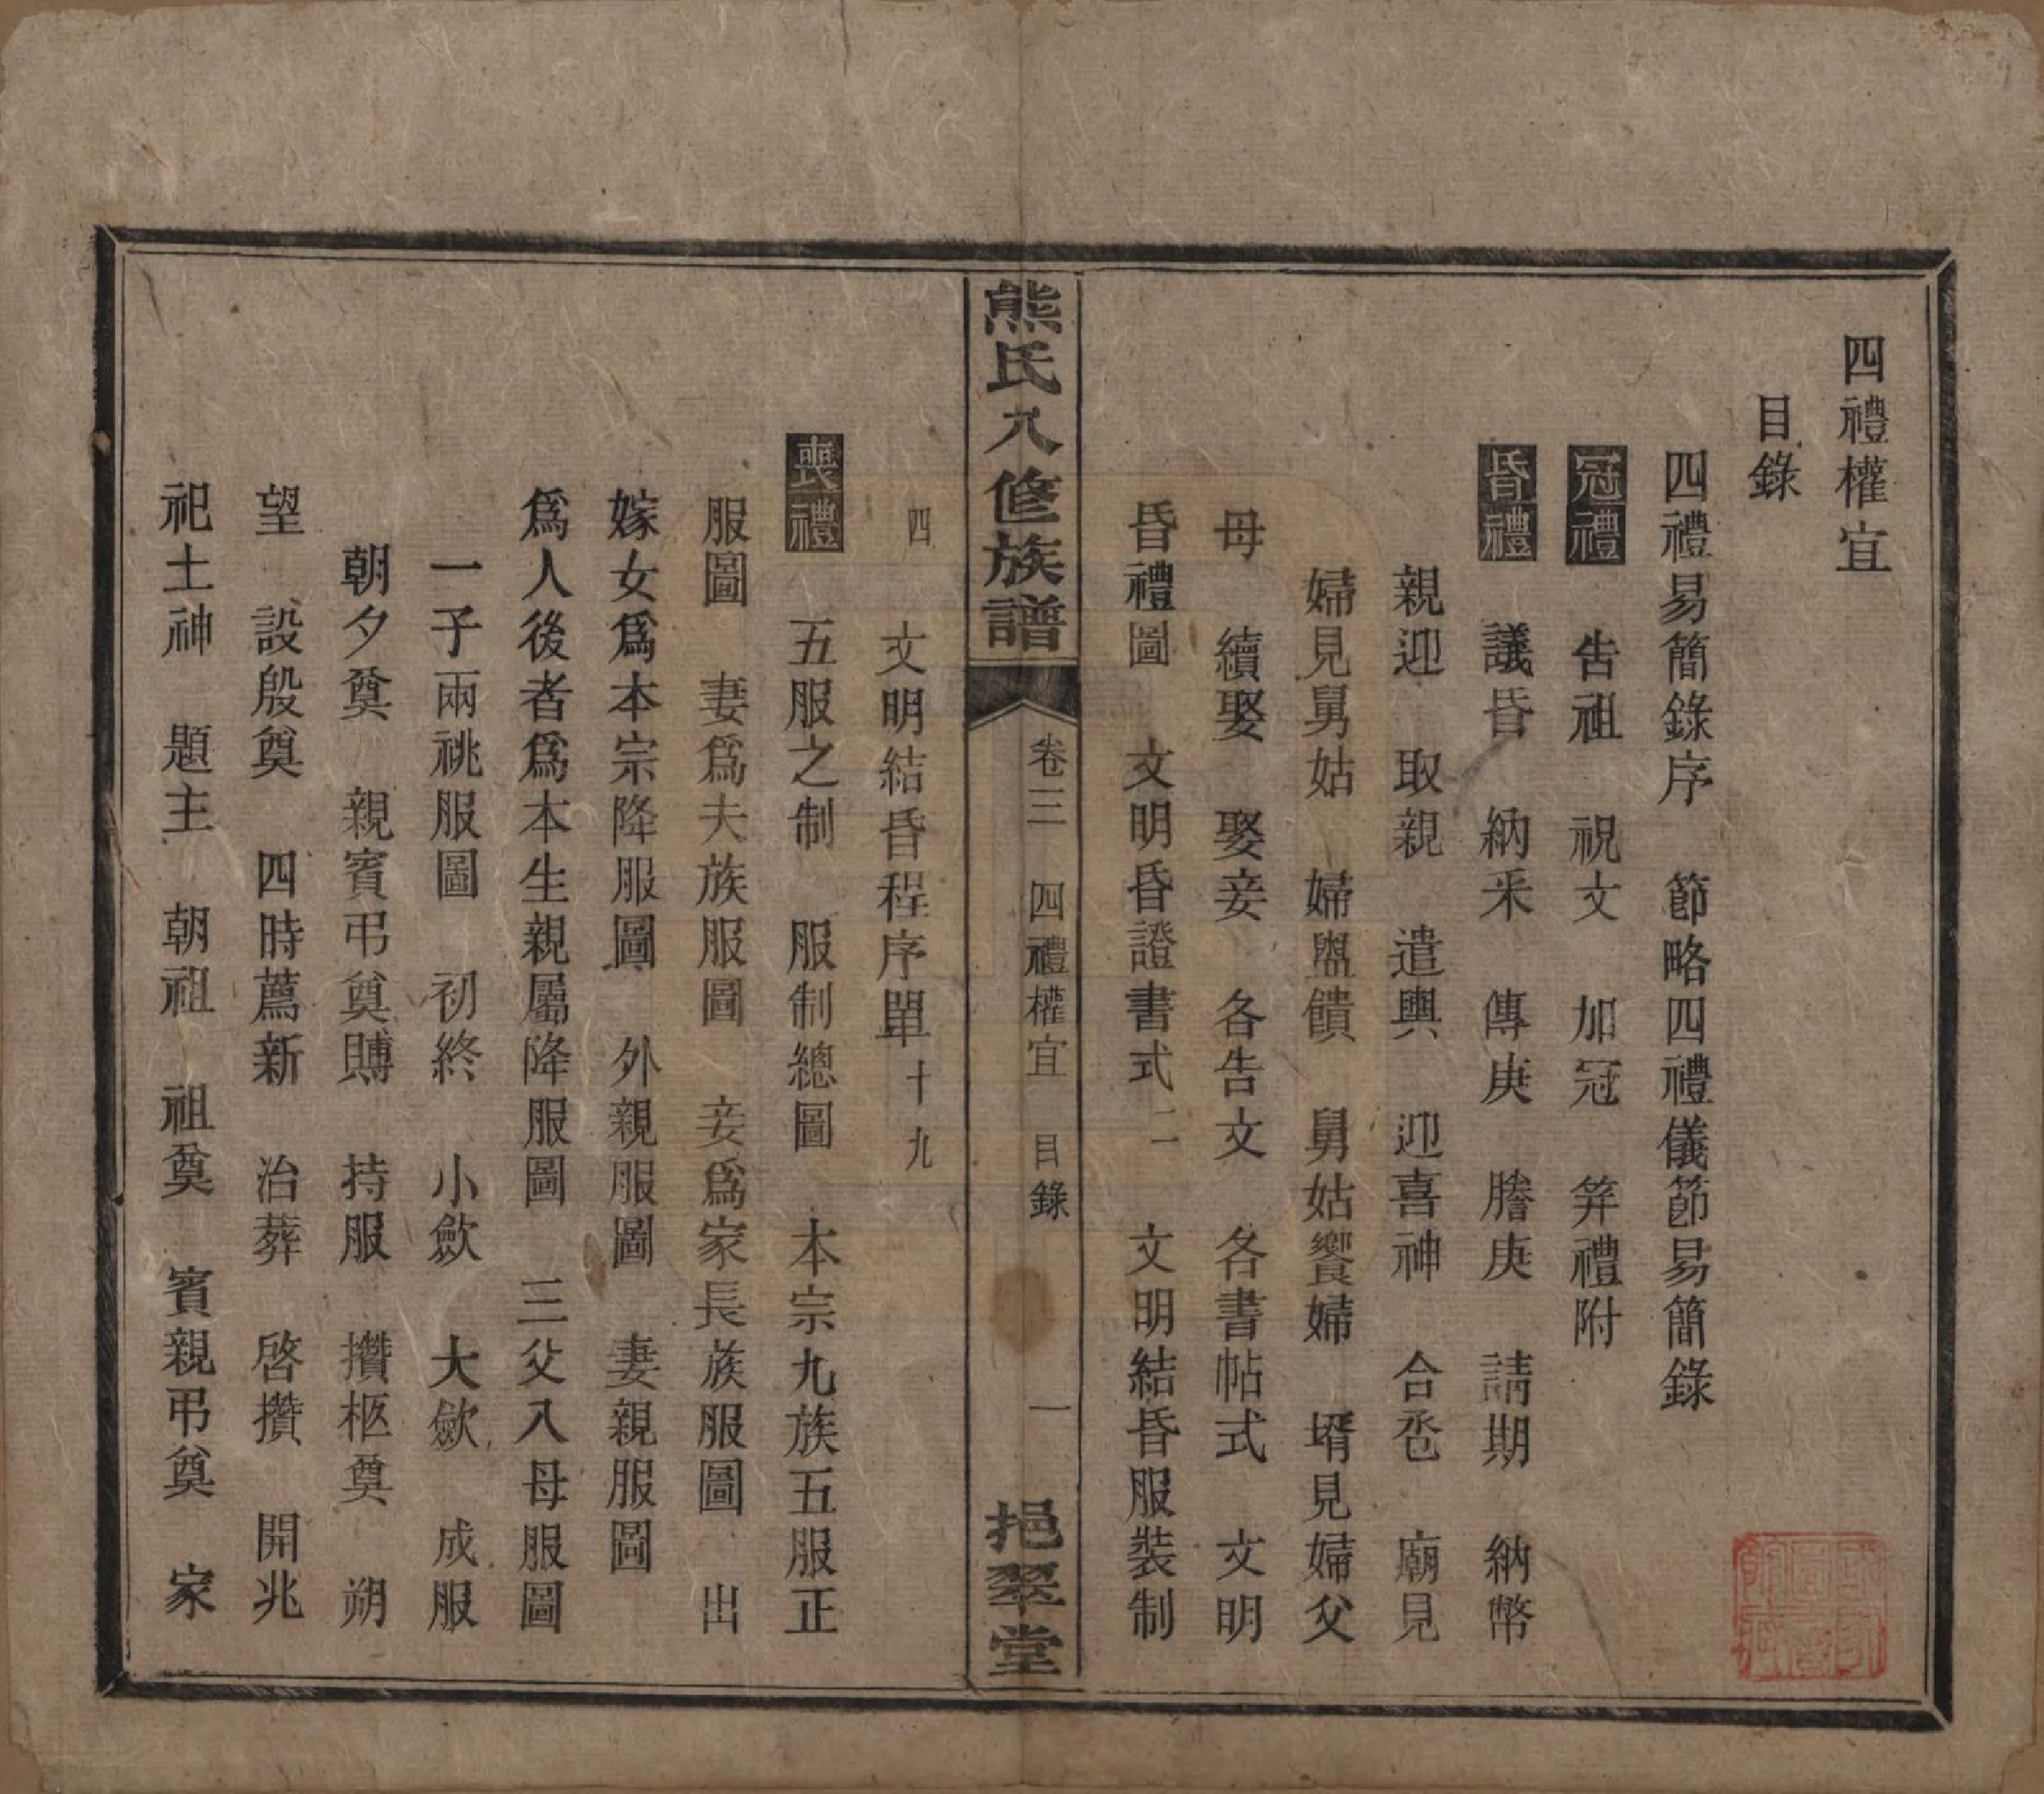 四禮權宜
目錄
四禮易簡錄序　節略四禮儀節易簡錄
冠禮　告祖　祝文　加冠　筓禮附
昏禮　議昏　納釆　傳庚　謄庚　請期　納幣
親迎　取親　遣輿　迎喜神　合卺　廟見
婦見舅姑　婦盥饋　舅姑饗婦　壻見婦父
母　續娶　娶妾　各告文　各書帖式　文明
昏禮圖　文明昏證書式二　文明結昏服裝制
熊氏八修族譜　卷三　四禮權宜　目錄　一　挹翠堂
四　文明結昏程序單十九
喪禮　五服之制　服制總圖　本宗九族五服正
服圖　妻爲夫族服圖　妾爲家長族服圖　出
嫁女爲本宗降服圖　外親服圖　妻親服圖
爲人後者爲本生親屬降服圖　三父八母服圖
一子兩祧服圖　初終　小歛　大歛　成服
朝夕奠　親賓弔奠賻　持服　攢柩奠　朔
望　設殷奠　四時薦新　治葬　啓攢　開兆
祀土神　題主　朝祖　祖奠　賓親弔奠　家